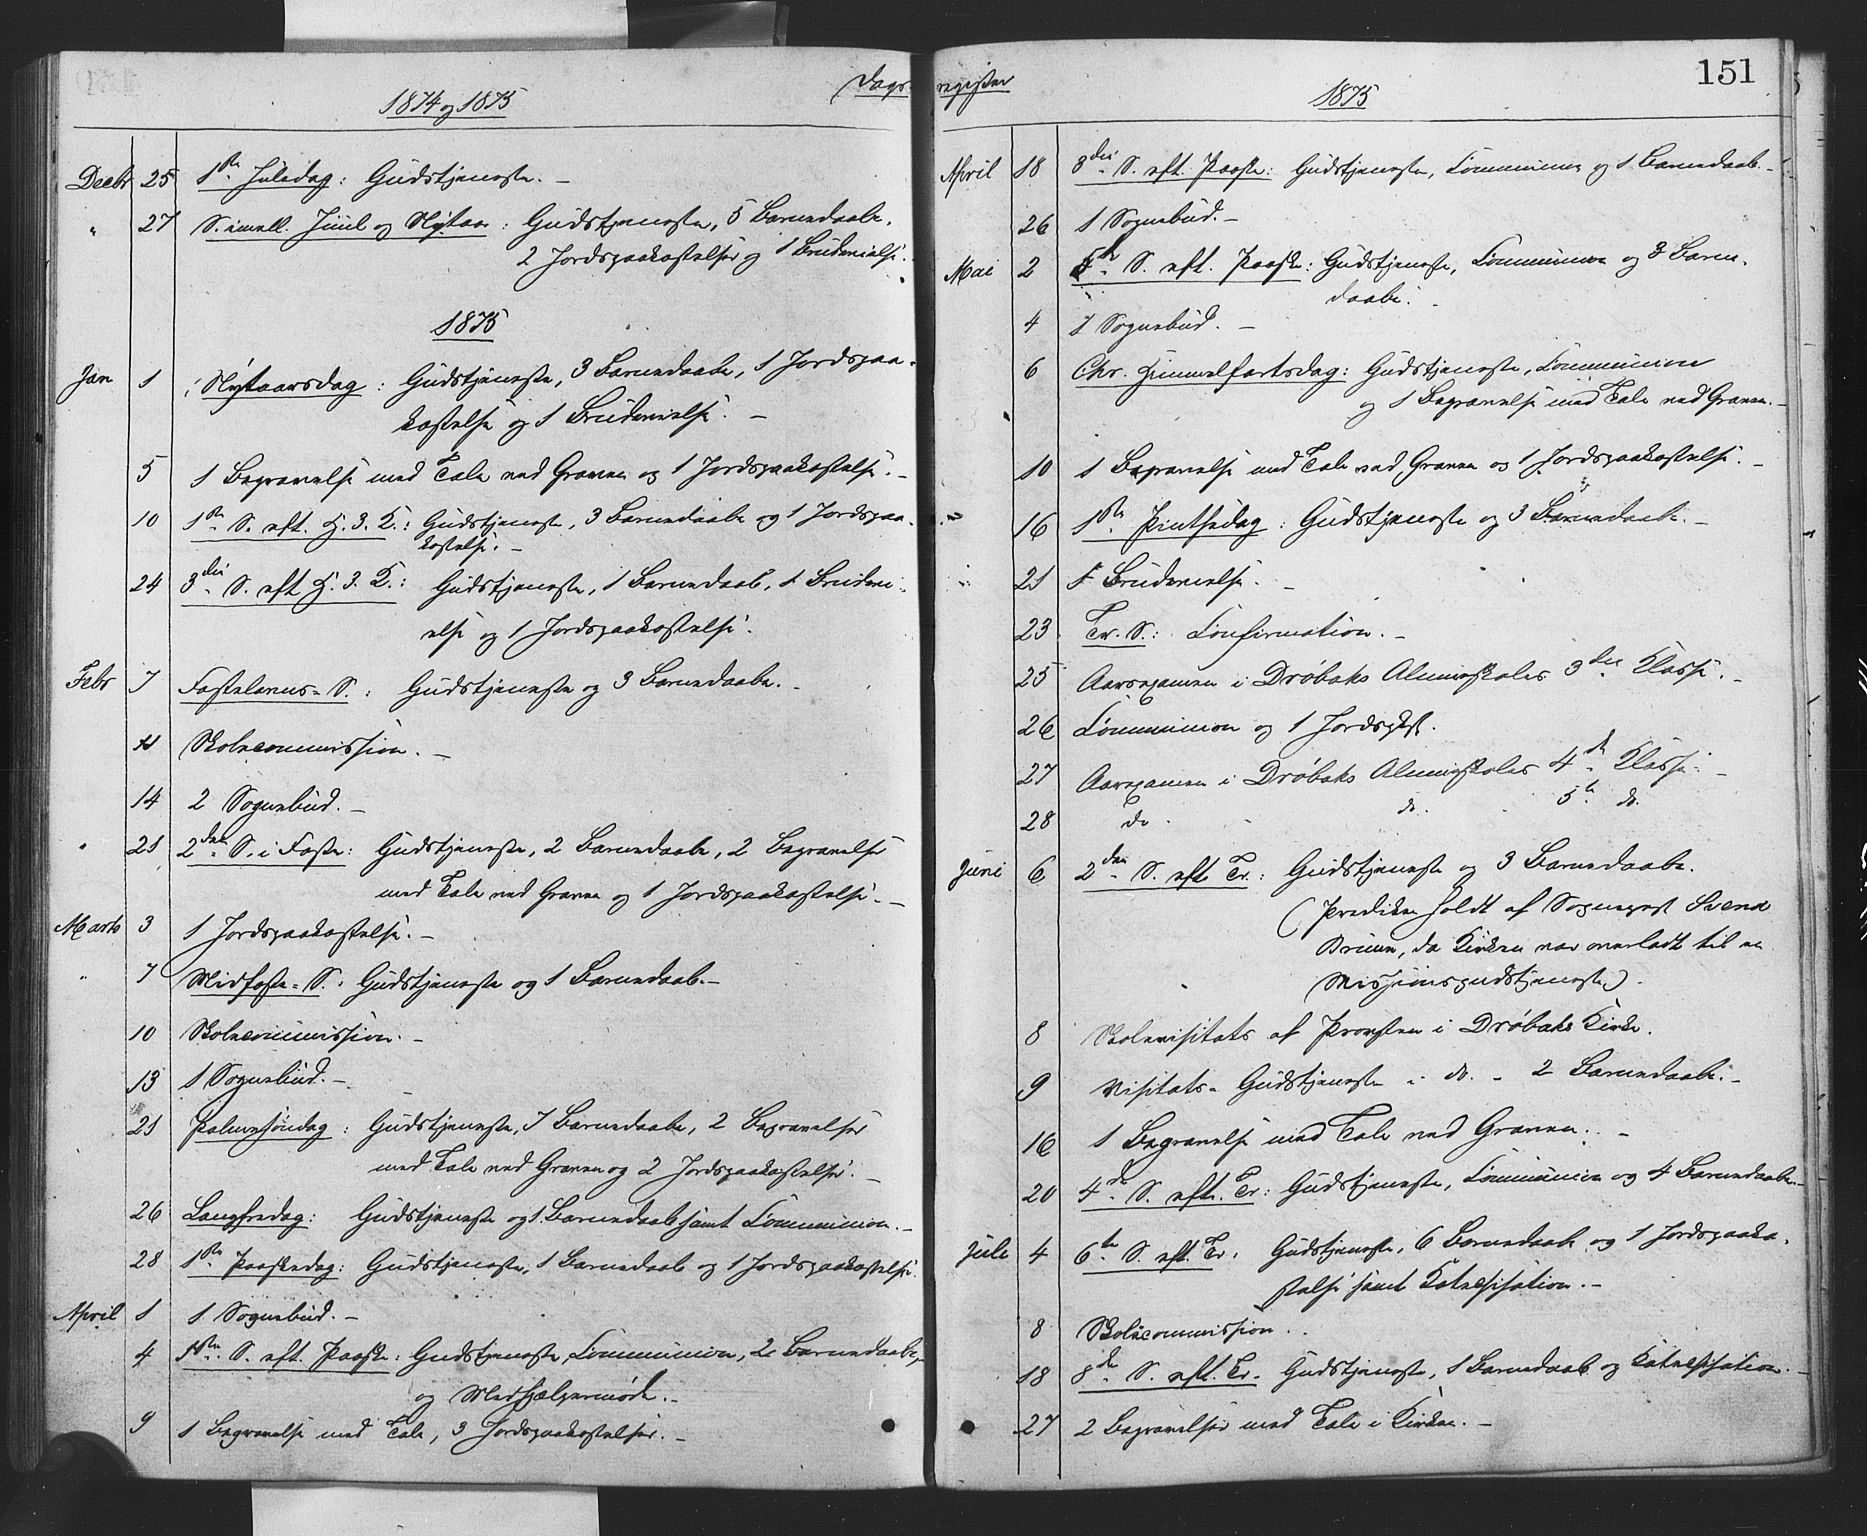 Dagsregister
1874 og 1875
Decbr 25 1ste Juledag: Gudstjeneste. –
" 27 S. imell. Juul og Nytaar: Gudstjeneste, 5 Barnedaabe,
2 Jordspaakastelser og 1 Brudevielse.
1875
Jan 1 Nytaarsdag: Gudstjeneste, 3 Barnedaabe, 1 Jordspaa-
kastelse og 1 Brudevielse. –
5 1 Begravelse med Tale ved Graven og 1 Jordspaakastelse. –
10 1ste S. eft. H. 3. K.: Gudstjeneste, 3 Barnedaabe og 1 Jordspaa-
kastelse. –
24 3die S. eft H. 3. K.: Gudstjeneste, 1 Barnedaab, 1 Brudevi-
else og 1 Jordspaakastelse.
Febr 7 Fastelavns-S.: Gudstjeneste og 3 Barnedaabe. –
11 Skolecommission. –
14 2 Sognebud. –
" 21 2den S. i Faste: Gudstjeneste, 2 Barnedaabe, 2 Begravelser
med Tale ved Graven og 1 Jordspaakastelse. –
Marts 3 1 Jordspaakastelse. –
" 7 Midfaste-S.: Gudstjeneste og 1 Barnedaab. –
10 Skolecommission. –
13 1 Sognebud. –
21 Palmesøndag: Gudstjeneste, 7 Barnedaabe, 2 Begravelser
med Tale ved Graven og 2 Jordspaakastelser. –
26 Langfredag: Gudstjeneste og 1 Barnedaab samt Communion. –
28 1ste Paaskedag: Gudstjeneste, 1 Barnedaab og 1 Jordspaakastelse.
April 1 1 Sognebud. –
4 1ste S. eft. Paaske: Gudstjeneste, Communion, 2 Barnedaabe,
og Medhjælpermøde. –
9 1 Begravelse med Tale, 3 Jordspaakastelser. –
1875
151
April 18 3die S. eft. Paaske: Gudstjeneste, Communion og 1 Barnedaab. –
26 1 Sognebud. –
Mai 2 5te S. eft. Paaske: Gudstjeneste, Communion og 3 Barne-
daabe. –
4 1 Sognebud. –
6 Chr. Himmelfartsdag: Gudstjeneste, Communion
og 1 Begravelse med Tale ved Graven. –
10 1 Begravelse med Tale ved Graven og 1 Jordspaakastelse. –
16 1ste Pintsedag: Gudstjeneste og 3 Barnedaabe. –
21 1 Brudevielse. –
23 Tr. S.: Confirmation. –
25 Aarsexamen i Drøbaks Almueskoles 3die Klasse. –
26 Communion og 1 Jordspkst.
27 Aarsexamen i Drøbaks Almueskoles 4de Klasse. –
28 do. do. 5te do.
Juni 6 2den S. eft. Tr.: Gudstjeneste og 3 Barnedaabe.
(Prediken holdt af Sognepræst Svend
Bruun, da Kirken var overladt til en
Missionsgudstjeneste).
8 Skolevisitats af Provsten i Drøbaks Kirke.
9 Visitats-Gudstjeneste i do. – 2 Barnedaabe. –
16 1 Begravelse med Tale ved Graven. –
20 4de S. eft. Tr.: Gudstjeneste, Communion og 4 Barnedaabe. –
Juli 4 6te S. eft. Tr.: Gudstjeneste, 6 Barnedaabe og 1 Jordspaaka-
stelse samt Katechisation. –
8 Skolecommission.
18 8de S. eft. Tr. Gudstjeneste, 1 Barnedaab og Katechisation. –
27 2 Begravelser med Tale i Kirken. –